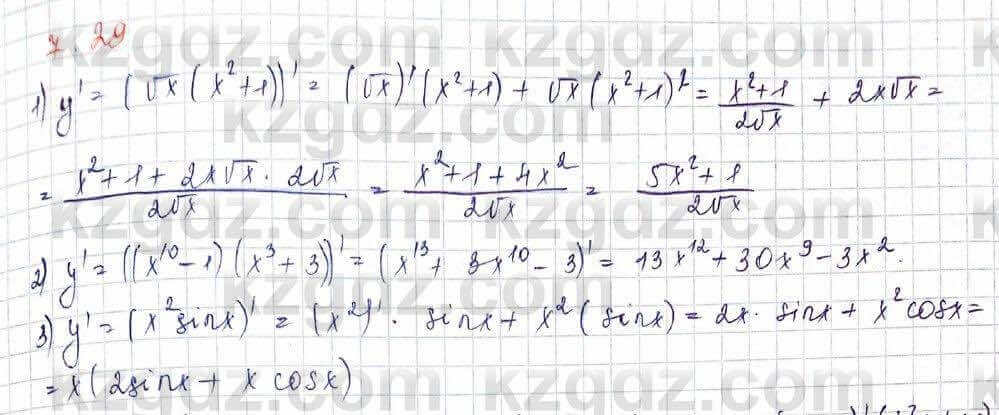 7.29
1) y' = (√x (x²+1))' = (√x)' (x²+1) + √x (x²+1)' = (x²+1)/(2√x) + 2x√x =
= (x²+1+2x√x · 2√x)/(2√x) = (x²+1+4x²)/(2√x) = (5x²+1)/(2√x)
2) y' = ((x¹⁰-1)(x³+3))' = (x¹³ + 3x¹⁰ - 3)' = 13x¹² + 30x⁹ - 3x².
3) y' = (x² sinx)' = (x²)' · sinx + x² (sinx) = 2x · sinx + x² cosx =
= x(2sinx + x cosx)
kzgdz.com
kzgdz.com
kzgdz.com
kzgdz.com
kzgdz.com
kzgdz.com